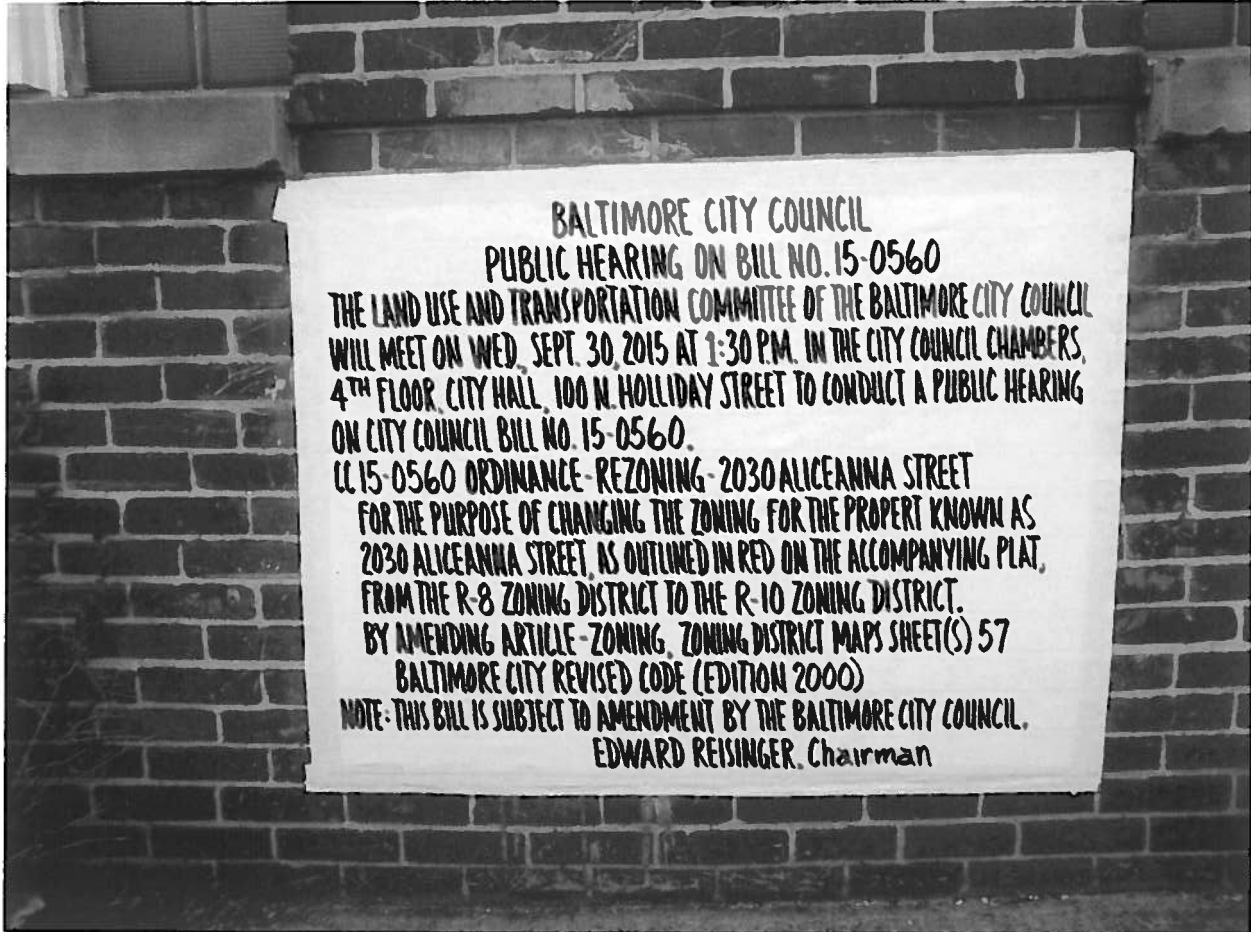 BALTIMORE CITY COUNCIL
PUBLIC HEARING ON BILL NO. 15-0560
THE LAND USE AND TRANSPORTATION COMMITTEE OF THE BALTIMORE CITY COUNCIL
WILL MEET ON WED., SEPT. 30, 2015 AT 1:30 P.M. IN THE CITY COUNCIL CHAMBERS,
4TH FLOOR, CITY HALL, 100 N. HOLLIDAY STREET TO CONDUCT A PUBLIC HEARING
ON CITY COUNCIL BILL NO. 15-0560.
CC 15-0560 ORDINANCE-REZONING-2030 ALICEANNA STREET
FOR THE PURPOSE OF CHANGING THE ZONING FOR THE PROPERT KNOWN AS
2030 ALICEANNA STREET, AS OUTLINED IN RED ON THE ACCOMPANYING PLAT,
FROM THE R-8 ZONING DISTRICT TO THE R-10 ZONING DISTRICT.
BY AMENDING ARTICLE-ZONING, ZONING DISTRICT MAPS SHEET(S) 57
BALTIMORE CITY REVISED CODE (EDITION 2000)
NOTE: THIS BILL IS SUBJECT TO AMENDMENT BY THE BALTIMORE CITY COUNCIL.
EDWARD REISINGER, Chairman